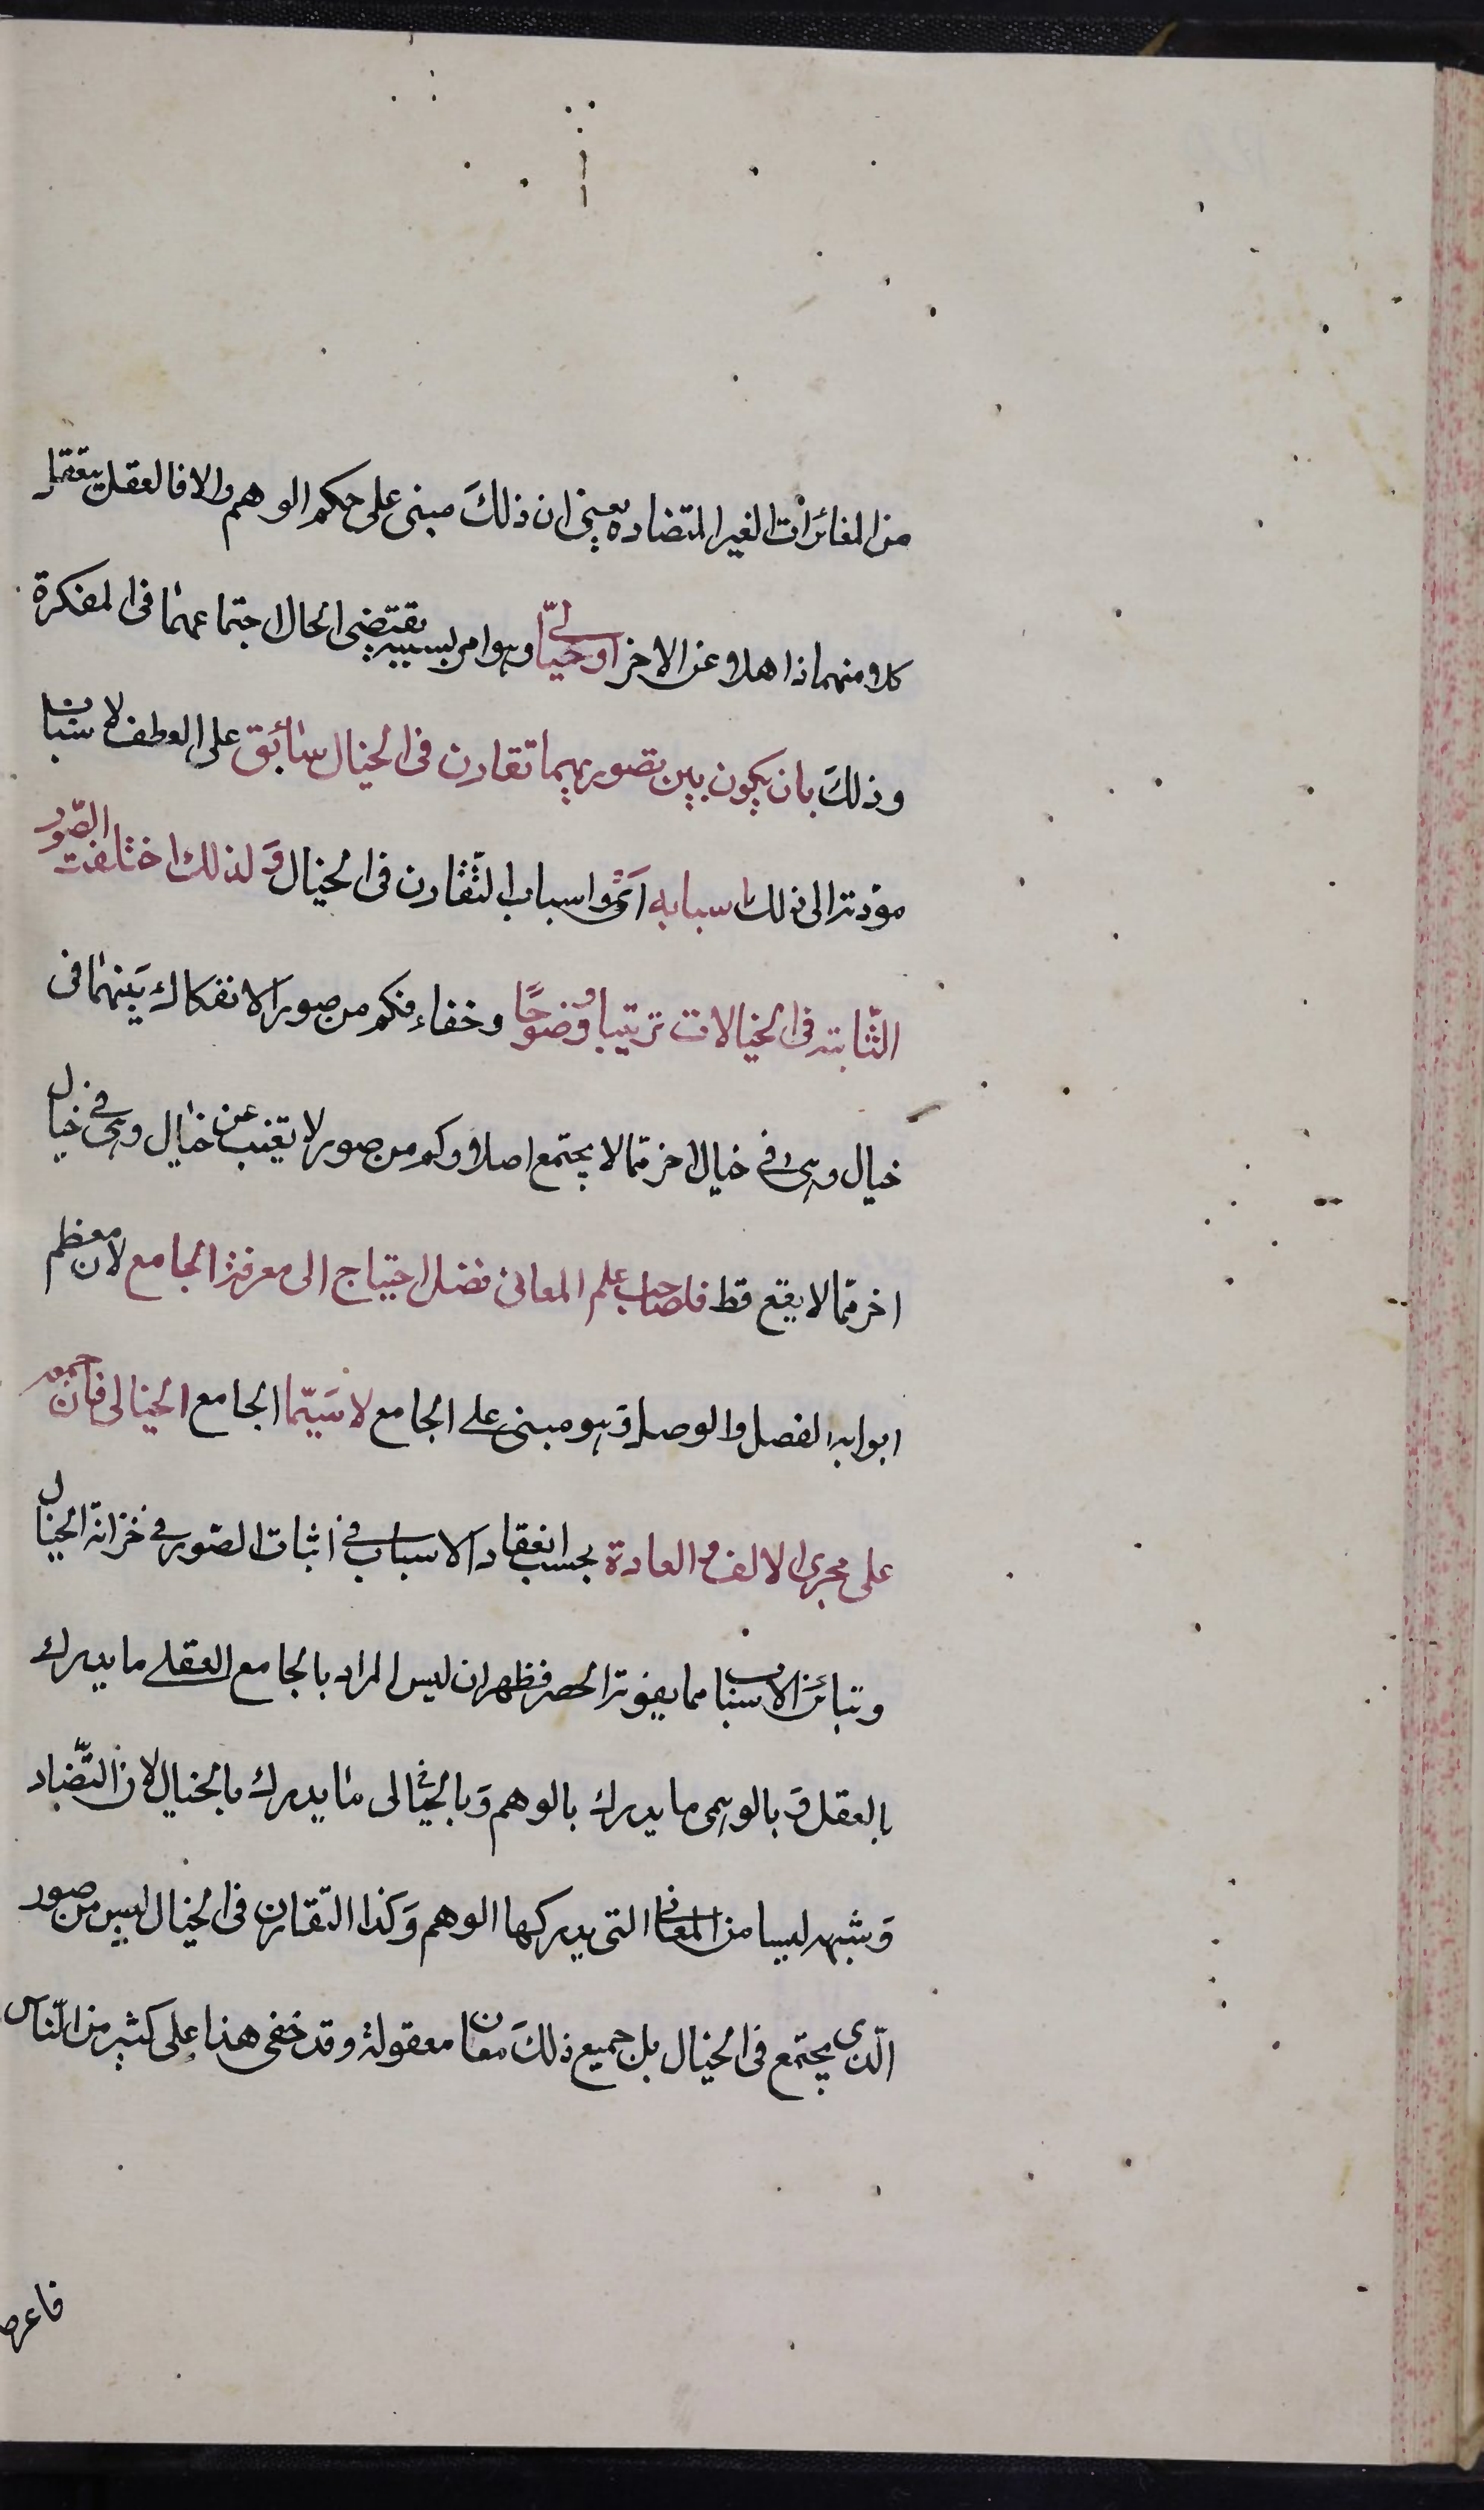 من المغائرات الغير المتضاده يعني ان ذلك مبنى على حكم الوهم والا فالعقل يتعقل
كلا منهما ذاهلا عن الاخر او خياليّ وهو امر بسببه يقتضي الخيال اجتماعهما فى المفكرة
وذلك بان يكون بين تصوريهما تقارن فى الخيال سابق على العطف لاسباب
مؤدته الى ذلك اسبابه اى واسباب التّقارن فى الخيال ولذلك اختلفت الصّور
الثّابته فى الخيالات ترتيبا ووضوحًا وخفاء فكم من صور لا انفكاك بينهما فى
خيال وهى فى خيال اخر ممّا لا يجتمع اصلا وكم من صور لا تغيب عن خيال وهى فى خيال
اخر ممّا لا يقع قط فلصاحب علم المعانى فضل احتياج الى معرفة الجامع لان معظم
ابوابه الفصل والوصل وهو مبنى على الجامع لا سيّما الجامع الخيالى فان جمعه
على مجرى الالف والعادة بحسب انعقاد الاسباب فى اثبات الصّور فى خزانة الخيال
وتبائن الاسباب مما يفوته الحصر فظهر ان ليس المراد بالجامع العقلى ما يدرك
بالعقل وبالوهمى ما يدرك بالوهم وبالخيالى ما يدرك بالخيال لان التّضاد
وشبهه ليسا من المعانى التى يدركها الوهم وكذا التّقارن فى الخيال ليس من صور
الّذى يجتمع فى الخيال بل جميع ذلك معان معقولة وقد خفى هذا على كثير من النّاس